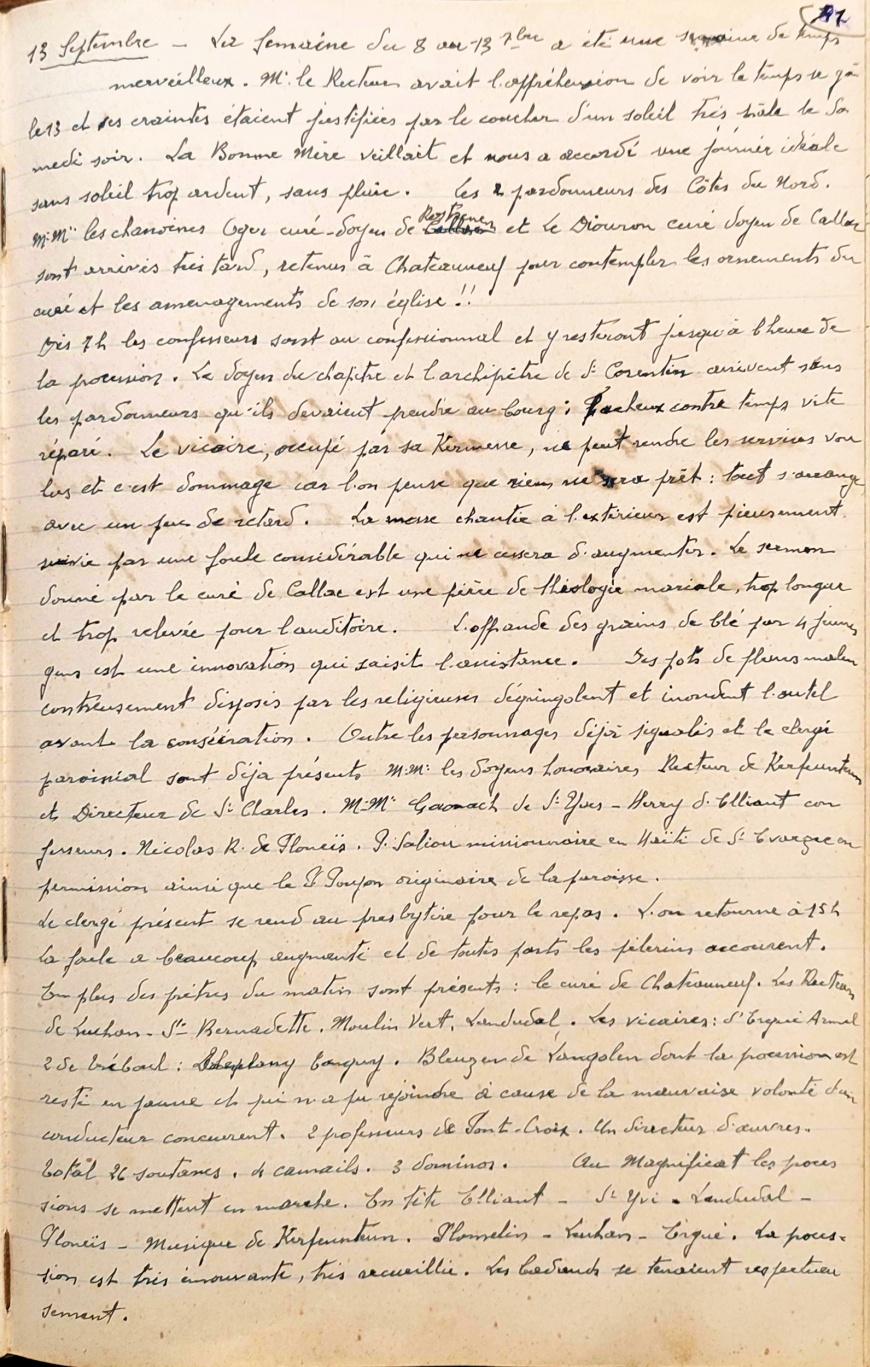 91
13 Septembre - La Semaine du 8 au 13 7bre a été une semaine de temps
merveilleux. Mr le Recteur avait l'appréhension de voir le temps se gâ
le 13 et ses craintes étaient justifiées par le coucher d'un soleil très pâle le Sa
medi soir. La Bonne Mère veillait et nous a accordé une journée idéale
sans soleil trop ardent, sans pluie. Les 2 pardonneurs des Côtes du Nord.
M.Mrs les chanoines Oger curé-doyen de Rostrenen et Le Diouron curé doyen de Callac
sont arrivés très tard, retenus à Chateauneuf pour contempler les ornements du
curé et les amenagements de son église !!
Dès 7h les confesseurs sont au confessionnal et y resteront jusqu'à l'heure de
la procession. Le doyen du chapitre et l'archiprêtre de St Corentin arrivent sans
les pardonneurs qu'ils devaient prendre au bourg : Facheux contre temps vite
réparé. Le vicaire, occupé par sa Kermesse, ne peut rendre les services vou
lus et c'est dommage car l'on pense que rien ne sera prêt : tout s'arrange
avec un peu de retard. La messe chantée à l'extérieur est pieusement
suivie par une foule considérable qui ne cessera d'augmenter. Le sermon
donné par le curé de Callac est une pièce de théologie mariale, trop longue
et trop relevée pour l'auditoire. L'offrande des grains de blé par 4 jeunes
gens est une innovation qui saisit l'assistance. Des pots de fleurs malen
contreusement disposés par les religieuses dégringolent et inondent l'autel
avant la consécration. Outre les personnages déjà signalés et le clergé
paroissial sont déja présents M.M. les doyens honoraires Recteur de Kerfeunteun
et Directeur de St Charles. M.Mrs Gaonach de St Yves - Herry d'Elliant con
fesseurs. Nicolas R. de Ploneïs. P. Saliou missionnaire en Haïti de St Evarzec en
permission ainsi que le P. Poupon originaire de la paroisse.
Le clergé présent se rend au presbytère pour le repas. L'on retourne à 15h
La foule a beaucoup augmenté et de toutes parts les pèlerins accourent.
En plus des prêtres du matin sont présents : le curé de Chateauneuf. Les Recteurs
de Leuhan - Ste Bernadette. Moulin Vert, Landudal. Les vicaires : d'Ergué Armel
2 de Tréboul : Coguy. Bleuzen de Langolen dont la procession est
resté en panne et qui n'a pu rejoindre à cause de la mauvaise volonté d'un
conducteur concurrent. 2 professeurs de Pont-Croix. Un directeur d'œuvres.
Total 26 soutanes. 4 camails. 3 dominos. Au Magnificat les proces
sions se mettent en marche. En tête Elliant - St Yvi - Landudal -
Ploneïs - Musique de Kerfeunteun. Plomelin - Leuhan - Ergué. La proces-
sion est très émouvante, très recueillie. Les badauds se tenaient respectueu
sement.